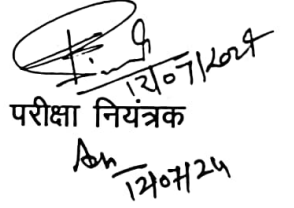 12/07/2024
परीक्षा नियंत्रक
12/07/24